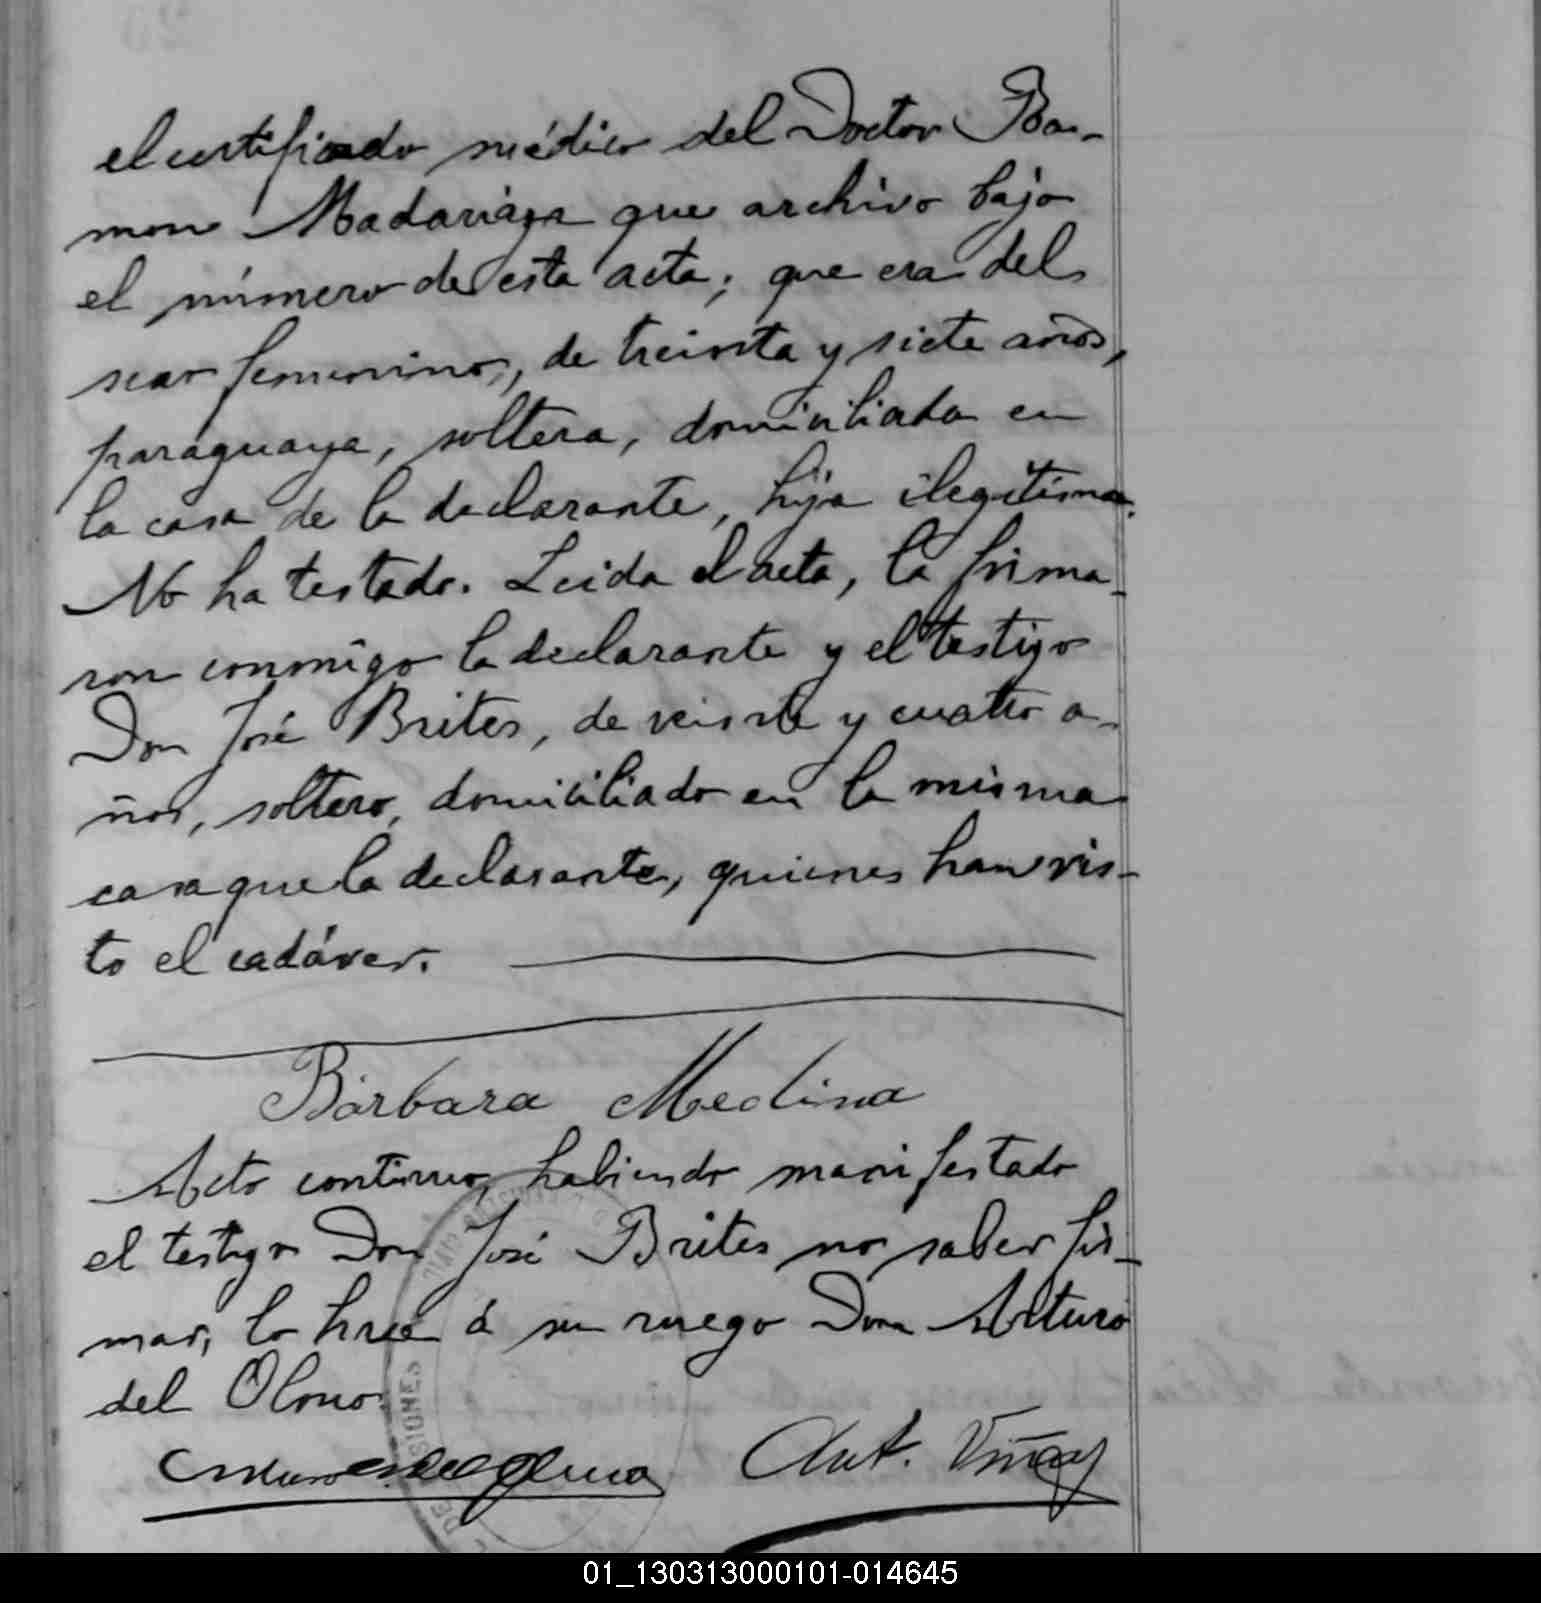 el certificado médico del Doctor Ra-
mon Madariaga que archivo bajo
el número de esta acta; que era del
sexo femenino, de treinta y siete años,
paraguaya, soltera, domiciliada en
la casa de la declarante, hija ilegitima.
No ha testado. Leida el acta, la firma-
ron conmigo la declarante y el testigo
Don José Brites, de veinte y cuatro a-
ños, soltero, domiciliado en la misma
casa que la declarante, quienes han vis-
to el cadáver.
Bárbara Medina
Acto continuo, habiendo manifestado
el testigo Don José Brites no saber fir-
mar, lo hace á su ruego Don Arturo
del Olmo.
Arturo del Olmo Ant. Viñas
01_130313000101-014645